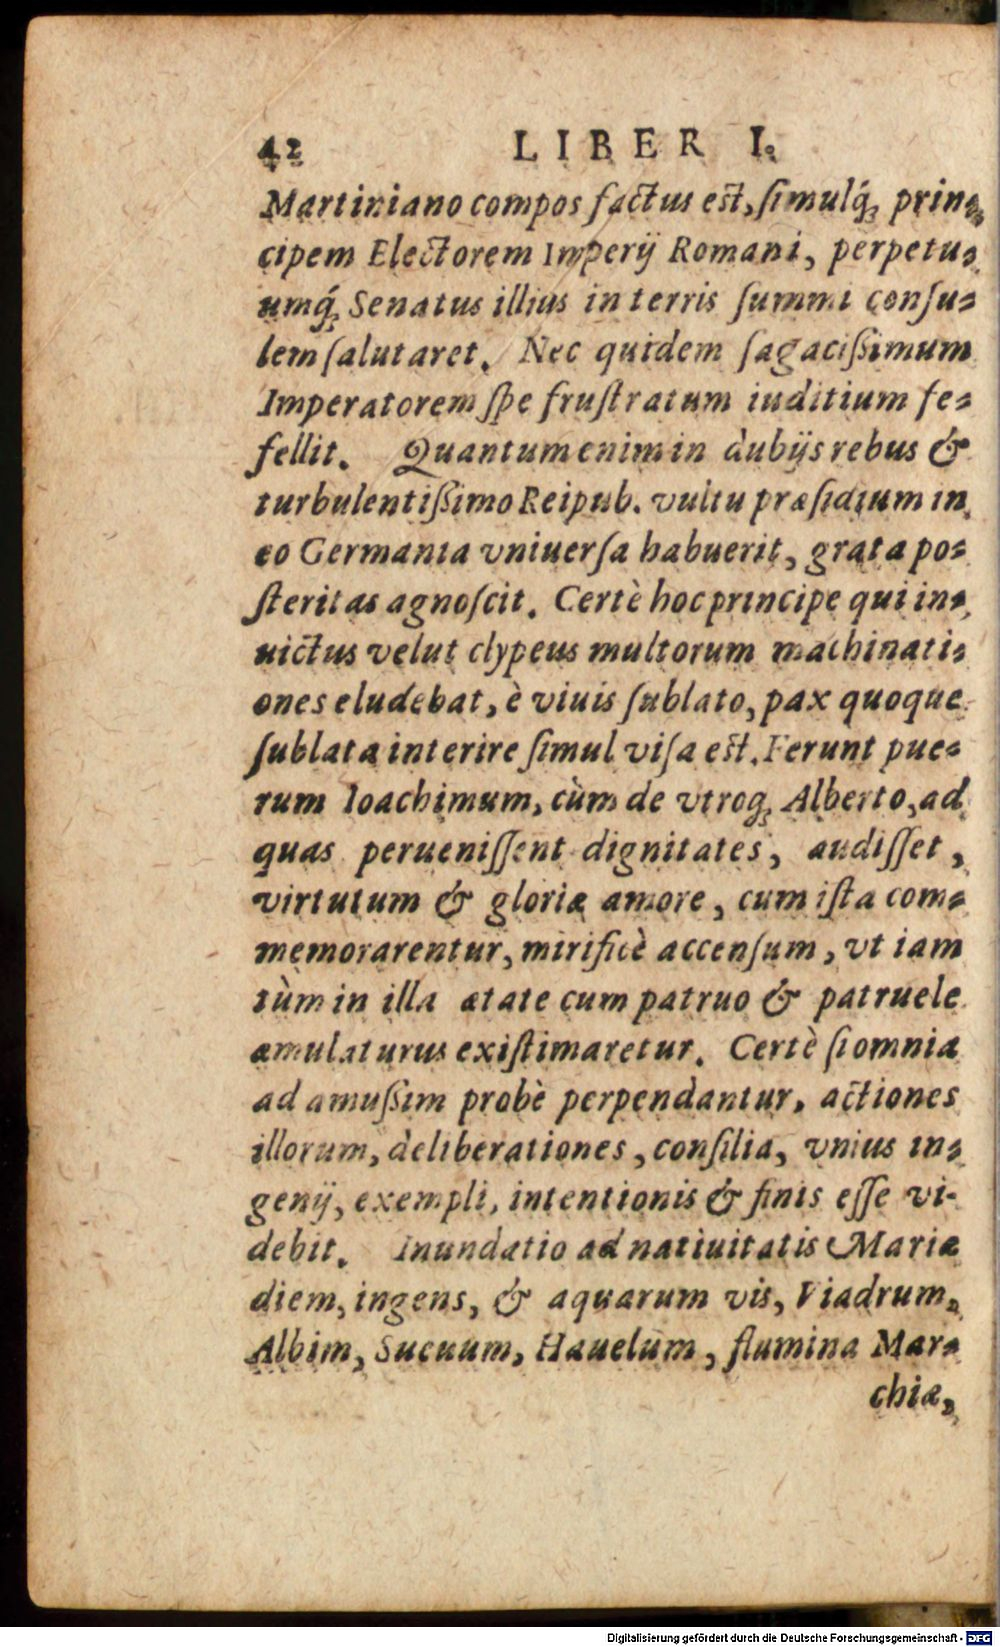 42 LIBER I.
Martiniano compos factus est, ſimulq́; prin=
cipem Electorem Imperij Romani, perpetu=
umq́; Senatus illius in terris ſummi conſu=
lem ſalutaret. Nec quidem ſagacißimum
Imperatorem ſpe fruſtratum iuditium fe=
fellit. Quantum enim in dubijs rebus &
turbulentißimo Reipub. vultu præſidium in
eo Germania vniuerſa habuerit, grata po=
ſteritas agnoſcit. Certè hoc principe qui in=
uictus velut clypeus multorum machinati=
ones eludebat, è viuis ſublato, pax quoque
ſublata interire ſimul viſa est. Ferunt pue=
rum Ioachimum, cùm de vtroq; Alberto, ad
quas perueniſſent dignitates, audiſſet,
virtutum & gloriæ amore, cum iſta com=
memorarentur, mirificè accenſum, vt iam
tùm in illa ætate cum patruo & patruele
æmulaturus exiſtimaretur. Certè ſi omnia
ad amußim probè perpendantur, actiones
illorum, deliberationes, conſilia, vnius in=
genij, exempli, intentionis & finis eſſe vi-
debit. Inundatio ad natiuitatis Mariæ
diem, ingens, & aquarum vis, Viadrum,
Albim, Sueuum, Hauelum, flumina Mar=
chiæ,
Digitalisierung gefördert durch die Deutsche Forschungsgemeinschaft - DFG